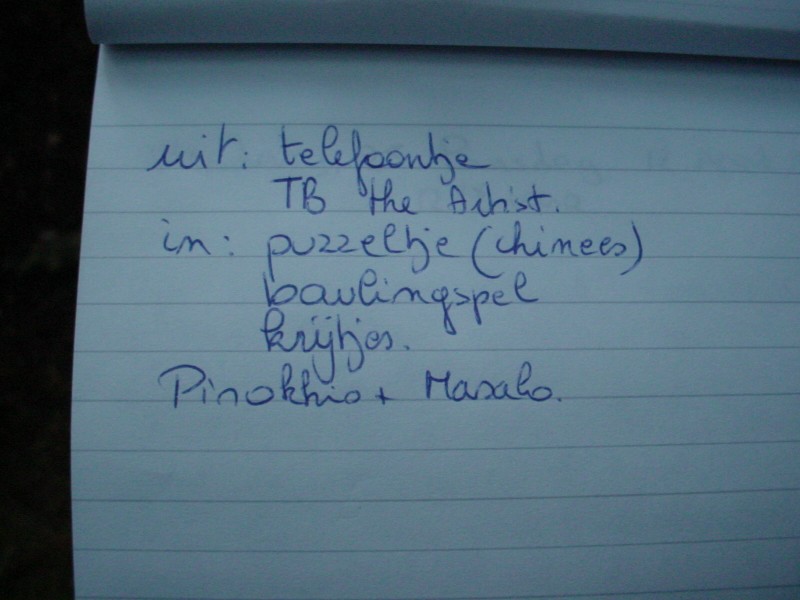 uit: telefoontje
TB the Artist.
in: puzzeltje (chinees)
bowlingspel
krijtjes.
Pinokkio +